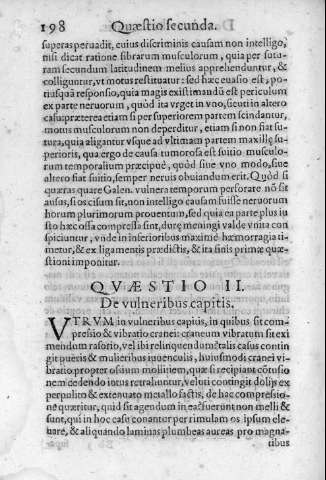 198 Quæstio secunda.
superas peruadit, cuius discriminis causam non intelligo,
nisi dicat ratione fibrarum musculorum, quia per sutu-
ram secundum latitudinem melius apprehenduntur, &
colliguntur, vt motus restituatur: sed hæc euasio est, po-
tiusquā responsio, quia magis existimandū est periculum
ex parte neruorum, quòd ita vrget in vno, sicuti in altero
casu: præterea etiam si per superiorem partem scindantur,
motus musculorum non deperditur, etiam si non fiat su-
tura, quia aligantur vsque ad vltimam partem maxillę su-
perioris, qua ergo de causa tumorosa est suitio musculo-
rum temporalium præcipuè, quòd siue vno modo, siue
altero fiat suitio, semper neruis obuiandum erit. Quòd si
quæras quare Galen. vulnera temporum perforare nō sit
ausus, si os cisum sit, non intelligo causam fuisse neruorum
horum plurimorum prouentum, sed quia ea parte plus iu
sto hæc ossa compressa sint, duræ meningi valde vnita con
spiciuntur, vnde in inferioribus maximè hæmorragia ti-
metur, & ex ligamentis prædictis, & ita finis primæ quæ-
stioni imponitur.
QVÆSTIO II.
De vulneribus capitis.
VTRVM in vulneribus capitis, in quibus sit com-
pressio & vibratio cranei: craneum vibratum sit exi
mendum rasorio, vel ibi relinquendum: tales casus contin
git pueris & mulieribus iuuenculis, huiusmodi cranei vi-
bratio, propter ossium molliciem, quæ si recipiant cōtusio
nem cedendo intus retrahuntur, veluti contingit dolijs ex
perpolito & extenuato metallo factis, de hac compressio-
ne quæritur, quid sit agendum in ea: fuerunt non nulli &
sunt, qui in hoc casu conantur per rimulam os ipsum ele-
uare, & aliquando laminas plumbeas aureas pro magna-
tibus